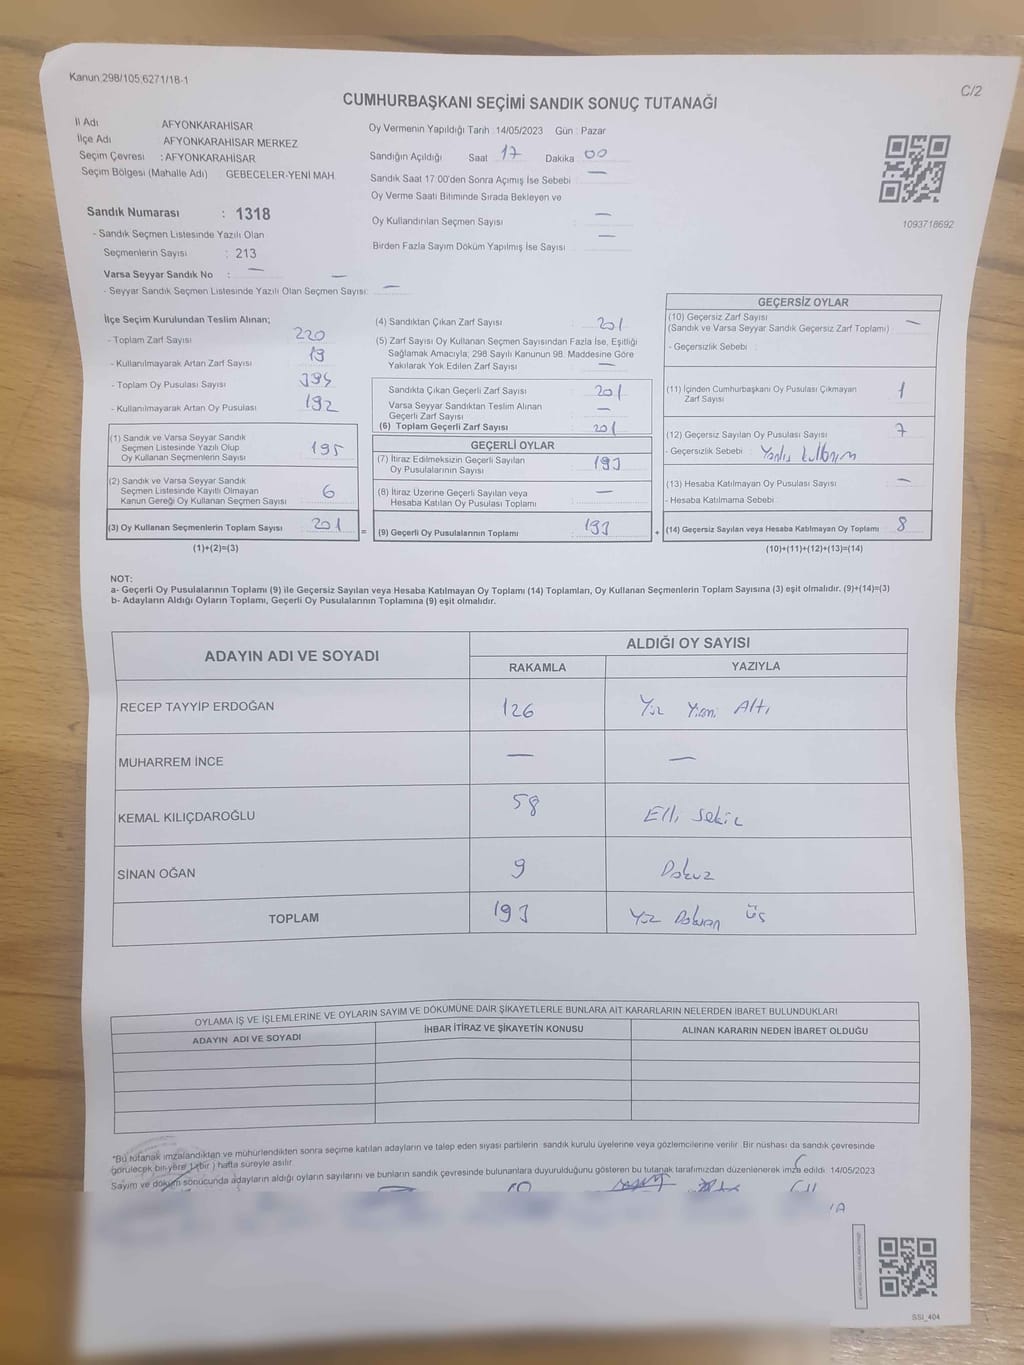 Kanun,298/105,6271/18-1
C/2
CUMHURBAŞKANI SEÇİMİ SANDIK SONUÇ TUTANAĞI
İl Adı AFYONKARAHİSAR
İlçe Adı AFYONKARAHİSAR MERKEZ
Seçim Çevresi : AFYONKARAHİSAR
Seçim Bölgesi (Mahalle Adı) : GEBECELER-YENİ MAH.
Sandık Numarası : 1318
- Sandık Seçmen Listesinde Yazılı Olan
Seçmenlerin Sayısı : 213
Varsa Seyyar Sandık No : —
- Seyyar Sandık Seçmen Listesinde Yazılı Olan Seçmen Sayısı: —
Oy Vermenin Yapıldığı Tarih : 14/05/2023 Gün : Pazar
Sandığın Açıldığı Saat 17 Dakika 00
Sandık Saat 17:00'den Sonra Açımış İse Sebebi : —
Oy Verme Saati Bitiminde Sırada Bekleyen ve
Oy Kullandırılan Seçmen Sayısı : —
Birden Fazla Sayım Döküm Yapılmış İse Sayısı : —
1093718692
İlçe Seçim Kurulundan Teslim Alınan;
- Toplam Zarf Sayısı : 220
- Kullanılmayarak Artan Zarf Sayısı : 19
- Toplam Oy Pusulası Sayısı :
- Kullanılmayarak Artan Oy Pusulası : 192
(1) Sandık ve Varsa Seyyar Sandık
Seçmen Listesinde Yazılı Olup
Oy Kullanan Seçmenlerin Sayısı : 195
(2) Sandık ve Varsa Seyyar Sandık
Seçmen Listesinde Kayıtlı Olmayan
Kanun Gereği Oy Kullanan Seçmen Sayısı : 6
(3) Oy Kullanan Seçmenlerin Toplam Sayısı : 201 =
(1)+(2)=(3)
(4) Sandıktan Çıkan Zarf Sayısı : 201
(5) Zarf Sayısı Oy Kullanan Seçmen Sayısından Fazla İse, Eşitliği
Sağlamak Amacıyla; 298 Sayılı Kanunun 98. Maddesine Göre
Yakılarak Yok Edilen Zarf Sayısı : —
Sandıkta Çıkan Geçerli Zarf Sayısı : 201
Varsa Seyyar Sandıktan Teslim Alınan
Geçerli Zarf Sayısı : —
(6) Toplam Geçerli Zarf Sayısı : 201
GEÇERLİ OYLAR
(7) İtiraz Edilmeksizin Geçerli Sayılan
Oy Pusulalarının Sayısı : 193
(8) İtiraz Üzerine Geçerli Sayılan veya
Hesaba Katılan Oy Pusulası Toplamı : —
(9) Geçerli Oy Pusulalarının Toplamı : 193 +
GEÇERSİZ OYLAR
(10) Geçersiz Zarf Sayısı
(Sandık ve Varsa Seyyar Sandık Geçersiz Zarf Toplamı) : —
- Geçersizlik Sebebi :
(11) İçinden Cumhurbaşkanı Oy Pusulası Çıkmayan
Zarf Sayısı : 1
(12) Geçersiz Sayılan Oy Pusulası Sayısı : 7
- Geçersizlik Sebebi : Yanlış kullanım
(13) Hesaba Katılmayan Oy Pusulası Sayısı : —
- Hesaba Katılmama Sebebi :
(14) Geçersiz Sayılan veya Hesaba Katılmayan Oy Toplamı : 8
(10)+(11)+(12)+(13)=(14)
NOT:
a- Geçerli Oy Pusulalarının Toplamı (9) ile Geçersiz Sayılan veya Hesaba Katılmayan Oy Toplamı (14) Toplamları, Oy Kullanan Seçmenlerin Toplam Sayısına (3) eşit olmalıdır. (9)+(14)=(3)
b- Adayların Aldığı Oyların Toplamı, Geçerli Oy Pusulalarının Toplamına (9) eşit olmalıdır.
ADAYIN ADI VE SOYADI ALDIĞI OY SAYISI
RAKAMLA YAZIYLA
RECEP TAYYİP ERDOĞAN 126 Yüz Yirmi Altı
MUHARREM İNCE — —
KEMAL KILIÇDAROĞLU 58 Elli Sekiz
SİNAN OĞAN 9 Dokuz
TOPLAM 193 Yüz Doksan Üç
OYLAMA İŞ VE İŞLEMLERİNE VE OYLARIN SAYIM VE DÖKÜMÜNE DAİR ŞİKAYETLERLE BUNLARA AİT KARARLARIN NELERDEN İBARET BULUNDUKLARI
ADAYIN ADI VE SOYADI İHBAR İTİRAZ VE ŞİKAYETİN KONUSU ALINAN KARARIN NEDEN İBARET OLDUĞU
*Bu tutanak imzalandıktan ve mühürlendikten sonra seçime katılan adayların ve talep eden siyasi partilerin sandık kurulu üyelerine veya gözlemcilerine verilir. Bir nüshası da sandık çevresinde
görülecek bir yere 1 (bir) hafta süreyle asılır.
Sayım ve döküm sonucunda adayların aldığı oyların sayılarını ve bunların sandık çevresinde bulunanlara duyurulduğunu gösteren bu tutanak tarafımızdan düzenlenerek imza edildi. 14/05/2023
SSI_404